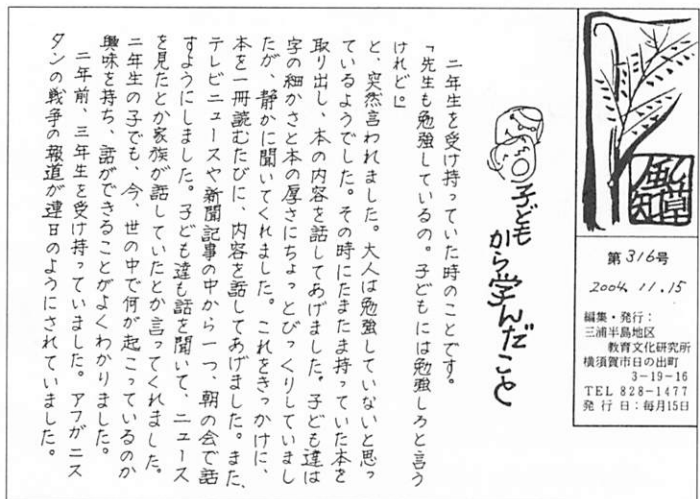 風知草
第316号
2004.11.15
編集・発行:
三浦半島地区
教育文化研究所
横須賀市日の出町
3-19-16
TEL 828-1477
発行日:毎月15日
子ども
から学んだこと
二年生を受け持っていた時のことです。
「先生も勉強しているの。子どもには勉強しろと言う
けれど。」
と、突然言われました。大人は勉強していないと思っ
ているようでした。その時にたまたま持っていた本を
取り出し、本の内容を話してあげました。子ども達は
字の細かさと本の厚さにちょっとびっくりしていまし
たが、静かに聞いてくれました。これをきっかけに、
本を一冊読むたびに、内容を話してあげました。また、
テレビニュースや新聞記事の中から一つ、朝の会で話
すようにしました。子ども達も話を聞いて、ニュース
を見たとか家族が話していたとか言ってくれました。
二年生の子でも、今、世の中で何が起こっているのか
興味を持ち、話ができることがよくわかりました。
二年前、三年生を受け持っていました。アフガニス
タンの戦争の報道が連日のようにされていました。